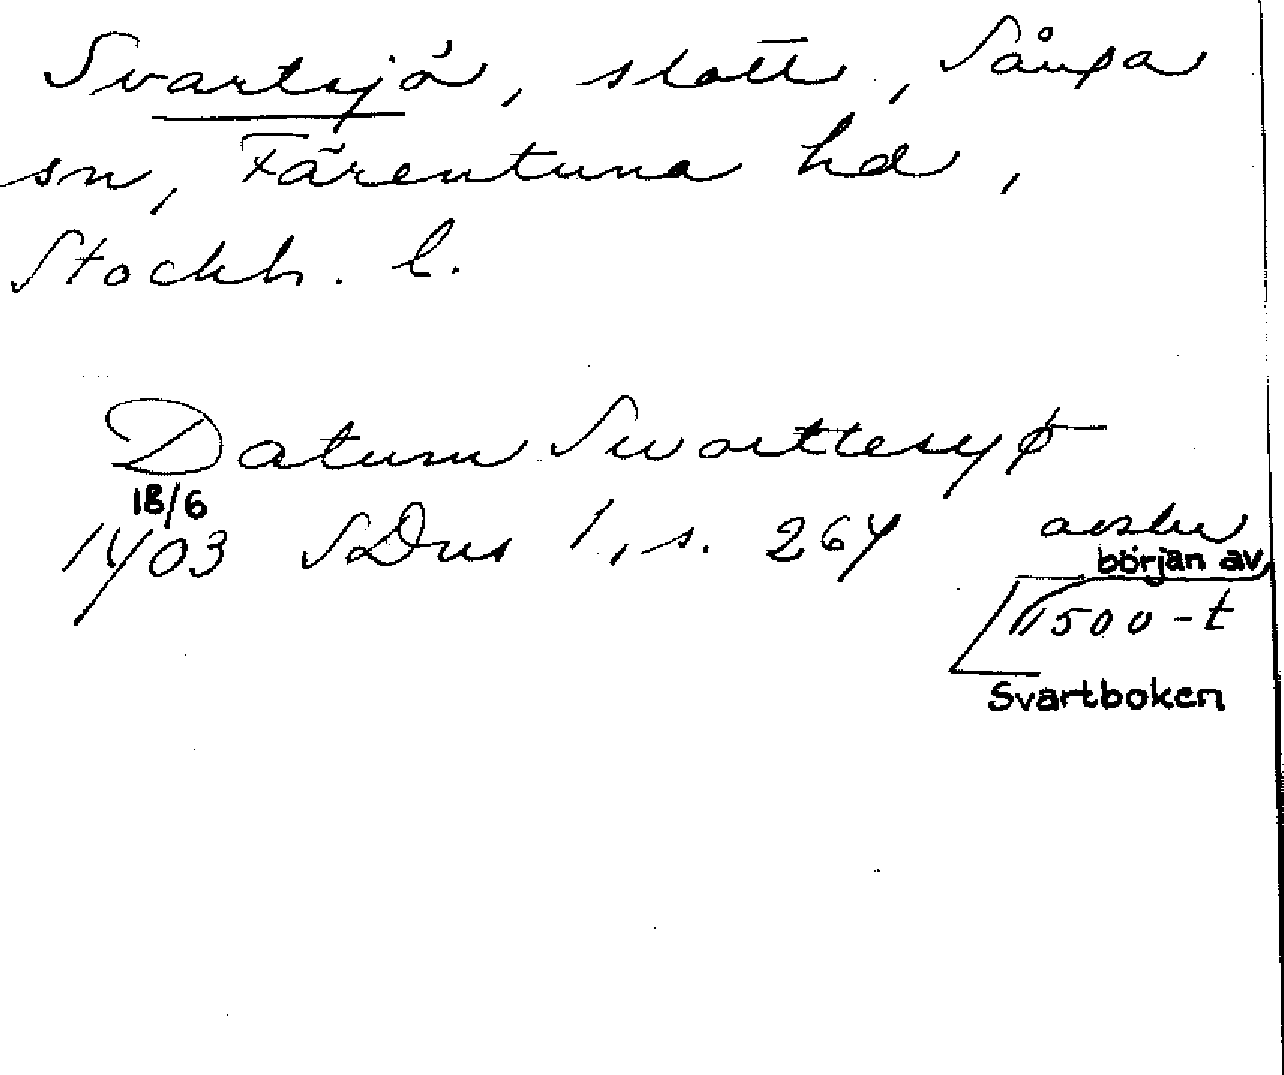 Svartsjö, slott, Sånga
sn, Färentuna hd,
Stockh. l.
Datum Swarttesyø
18/6
1403 SDns 1, s. 267 avskr
början av
1500-t
Svartboken